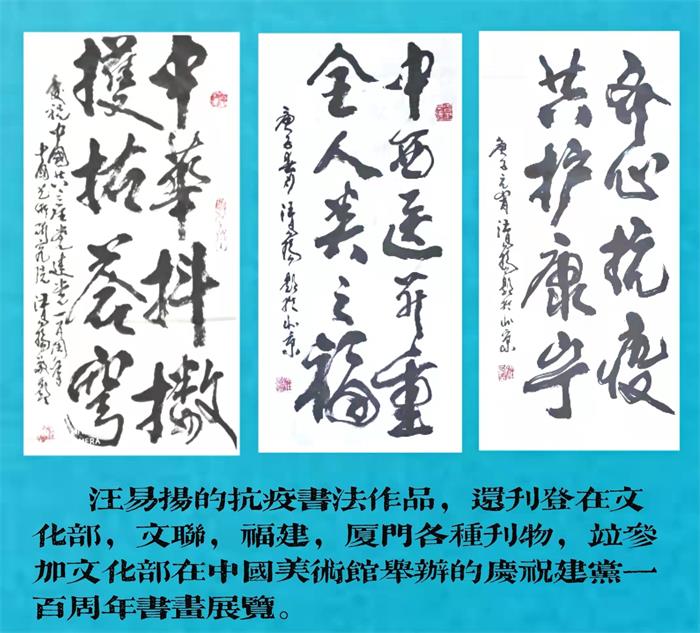 中華抖擻
蒼穹
慶祝中國共产党建党一百周年
中國艺術研究院 汪易揚敬題
中西医并重
全人类之福
庚子春月 汪易揚 題於北京
齐心抗疫
共护康宁
庚子元宵 汪易揚題於北京
汪易揚的抗疫書法作品，還刊登在文
化部，文聯，福建，厦門各種刊物，竝參
加文化部在中國美術館舉辦的慶祝建黨一
百周年書畫展覽。